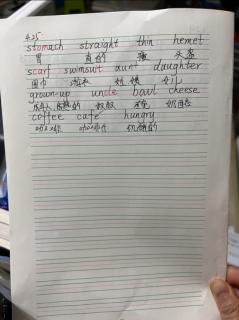 4.25.
stomach straight thin hemet
胃 直的 瘦 头盔
scarf swimsuit aunt daughter
围巾 泳衣 姑姨 女儿
grown-up uncle bowl cheese
成年人 叔叔 碗 奶酪
coffee cafe hungry
咖啡 咖啡 饥饿的